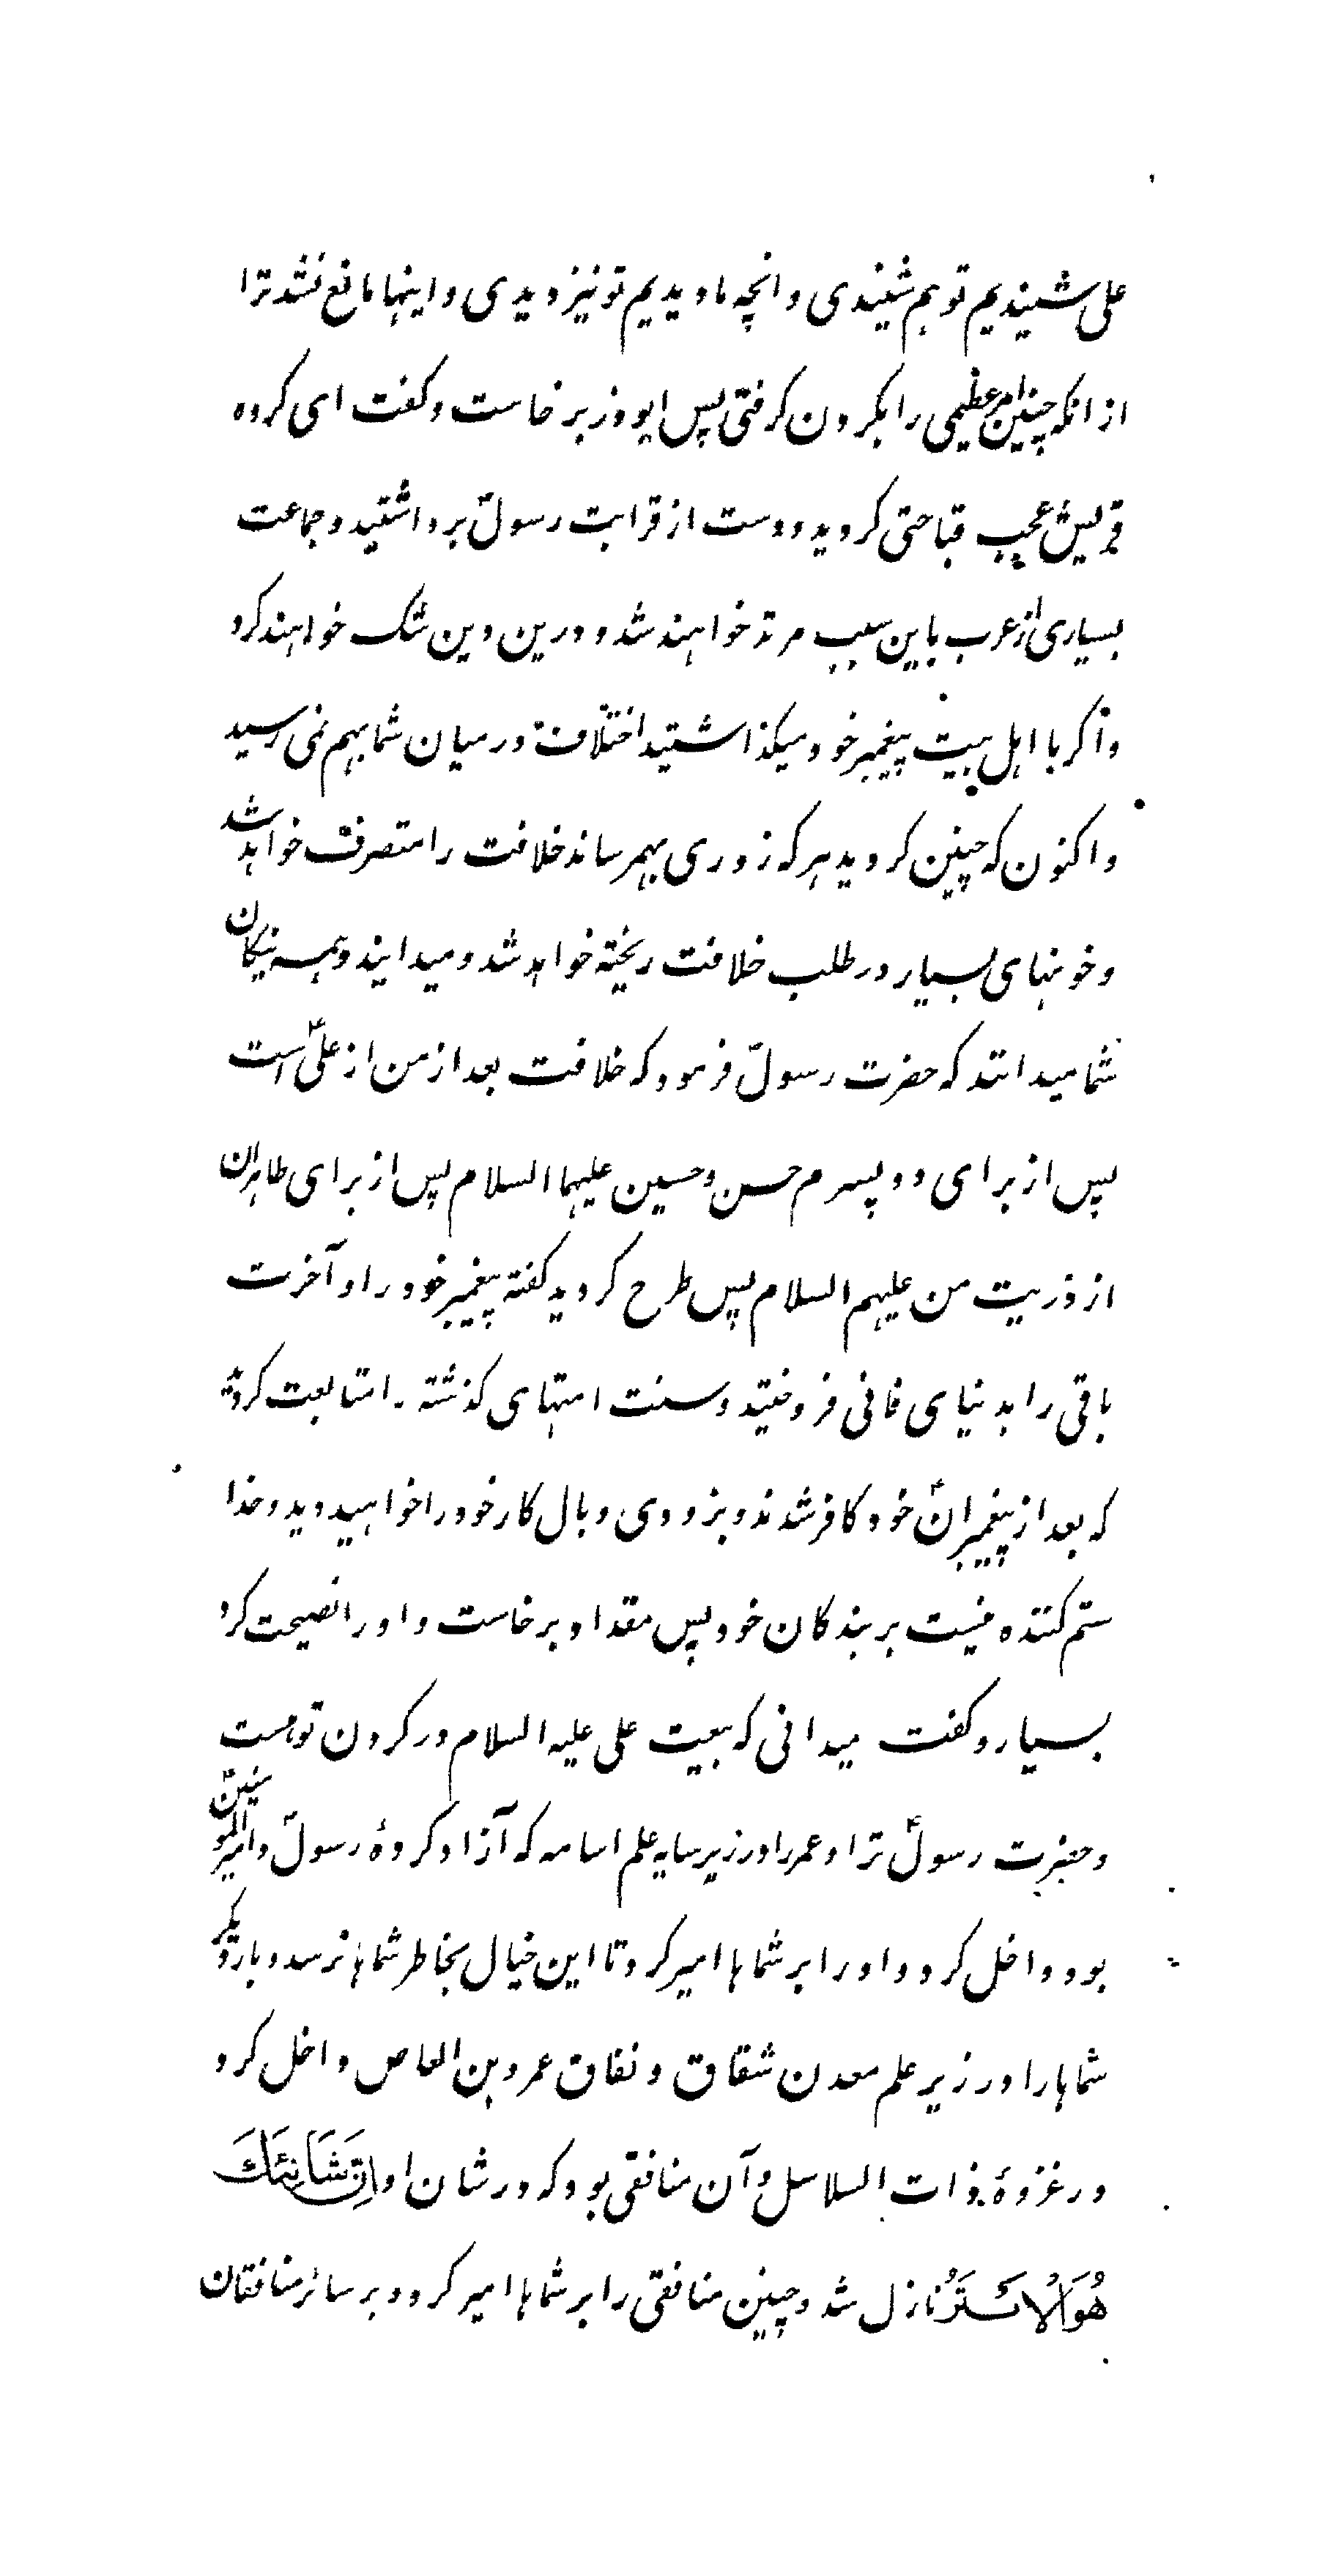 علی شنیدیم تو هم شنیدی و انچه ما دیدیم تو نیز دیدی و اینها مانع نشد ترا
از انکه چنین امر عظیمی را بکردن کرفتی پس ابوذر برخاست و کفت ای کروه
قریش عجب قباحتی کردید و دست از قرابت رسولؐ برداشتید و جماعت
بسیاری از عرب باین سبب مرتد خواهند شد و درین دین شک خواهند کرد
و اکر با اهل بیت پیغمبر خود میکذاشتید اختلاف در میان شما بهم نمی رسید
و اکنون که چنین کردید هر که زوری بهم رساند خلافت را متصرف خواهد شد
و خونهای بسیار در طلب خلافت ریخته خواهد شد و میدانید و همه نیکان
شما میدانند که حضرت رسولؐ فرمود که خلافت بعد از من از علیؑ است
پس از برای دو پسرم حسن و حسین علیهما السلام پس از برای طاهران
از ذریت من علیهم السلام پس طرح کردید کفته پیغمبر خود را و آخرت
باقی را بدنیای فانی فروختید و سنت امتهای کذشته را متابعت کردید
که بعد از پیغمبرانؑ خود کافر شدند و بزودی وبال کار خود را خواهید دید و خدا
ستم کننده نیست بر بندکان خود پس مقداد برخاست و او را نصیحت کرد
بسیار و کفت میدانی که بیعت علی علیه السلام در کردن تو هست
و حضرت رسولؐ ترا و عمر را در زیر سایه علم اسامه که آزاد کردهٔ رسولؐ و امیر المومنینؑ
بود داخل کرد و او را بر شماها امیر کرد تا این خیال بخاطر شماها نرسد و بار دیکر
شماها را در زیر علم معدن شقاق و نفاق عمرو بن العاص داخل کرد
در غزوهٔ ذات السلاسل و آن منافقی بود که در شان او اِنَّ شَانِئَكَ
هُوَ الْاَبْتَرُ نازل شد و چنین منافقی را بر شماها امیر کرد و بر سائر منافقان